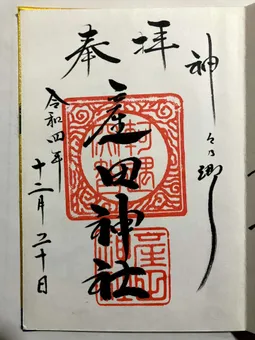 神々乃郷
奉拝
産田神社
令和四年
十二月二十日